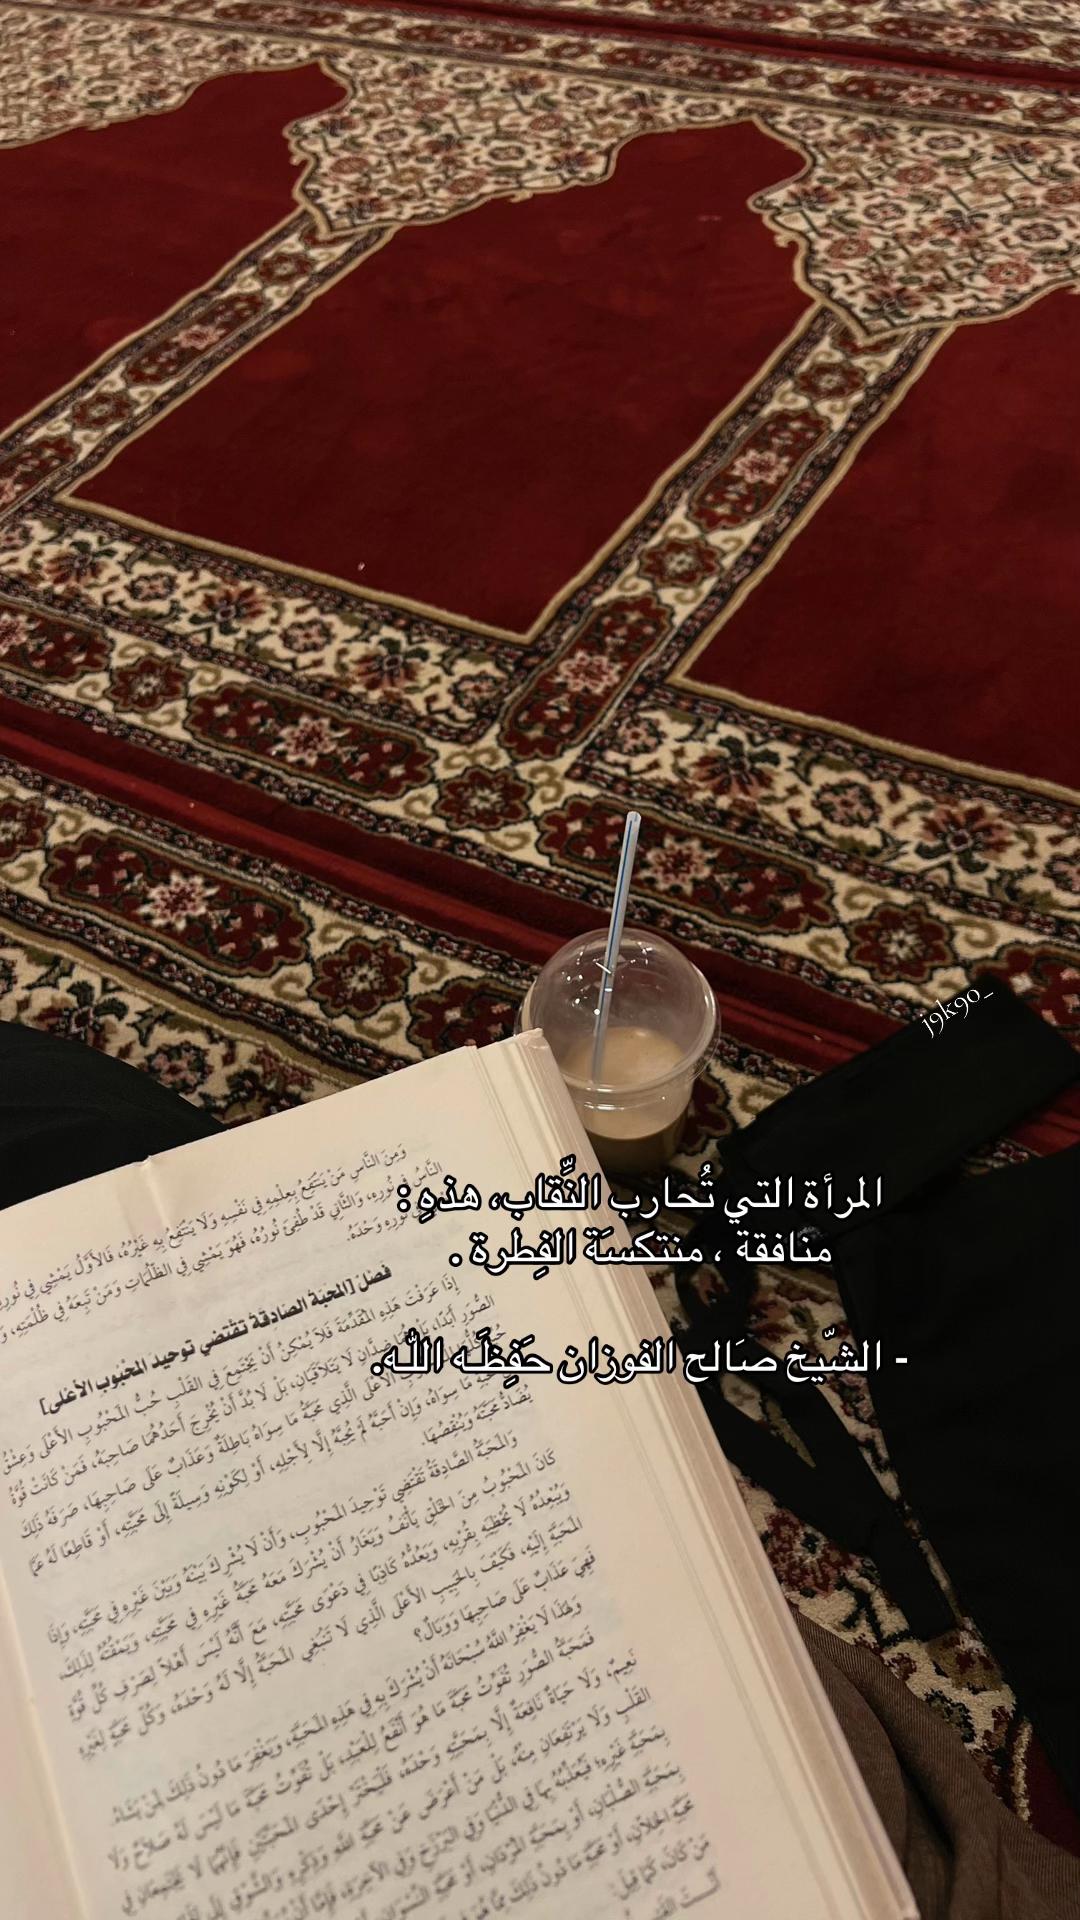 j9k90_
المرأة التي تُحارب النِّقاب، هذهِ :
منافقة ، منتكسَة الفِطرة .
- الشّيخ صَالح الفوزان حَفِظَه اللّٰه.
وَمِنَ النَّاسِ مَنْ يَنْتَفِعُ بِعِلْمِهِ فِي نَفْسِهِ وَلَا يَنْتَفِعُ بِهِ غَيْرُهُ، فَالأَوَّلُ يَمْشِي فِي نُورِهِ
النَّاسُ فِي نُورِهِ، وَالثَّانِي قَدْ طُفِئَ نُورُهُ، فَهُوَ يَمْشِي فِي الظُّلُمَاتِ وَمَنْ تَبِعَهُ فِي ظُلْمَتِهِ،
نُورِهِ وَحْدَهُ.
فصْل [المحَبّة الصَادقة تقتَضي توحيدَ المحْبُوب الأعْلى]
إِذَا عَرَفْتَ هَذِهِ المُقَدِّمَةَ فَلَا يُمْكِنُ أَنْ يَجْتَمِعَ فِي القَلْبِ حُبُّ المَحْبُوبِ الأَعْلَى وَعِشْقُ
الصُّوَرِ أَبَدًا، بَلْ هُمَا ضِدَّانِ لَا يَتَلَاقَيَانِ، بَلْ لَا بُدَّ أَنْ يُخْرِجَ أَحَدُهُمَا صَاحِبَهُ، فَمَنْ كَانَتْ قُوَّةُ
الأَعْلَى الَّذِي مَحَبَّةُ مَا سِوَاهُ بَاطِلَةٌ وَعَذَابٌ عَلَى صَاحِبِهَا، صَرَفَهُ ذَلِكَ
مَا سِوَاهُ، وَإِنْ أَحَبَّهُ لَمْ يُحِبَّهُ إِلَّا لِأَجْلِهِ، أَوْ لِكَوْنِهِ وَسِيلَةً إِلَى مَحَبَّتِهِ، أَوْ قَاطِعًا لَهُ عَمَّا
يُضَادُّ مَحَبَّتَهُ وَيُنْقِصُهَا.
وَالمَحَبَّةُ الصَّادِقَةُ تَقْتَضِي تَوْحِيدَ المَحْبُوبِ، وَأَنْ لَا يُشْرِكَ بَيْنَهُ وَبَيْنَ غَيْرِهِ فِي مَحَبَّتِهِ، وَإِذَا
كَانَ المَحْبُوبُ مِنَ الخَلْقِ يَأْنَفُ وَيَغَارُ أَنْ يُشْرَكَ مَعَهُ مَحَبَّةُ غَيْرِهِ فِي مَحَبَّتِهِ، وَيَمْقُتُهُ لِذَلِكَ،
وَيُبْعِدُهُ لَا يُحْظِيهِ بِقُرْبِهِ، وَيَعُدُّهُ كَاذِبًا فِي دَعْوَى مَحَبَّتِهِ، مَعَ أَنَّهُ لَيْسَ أَهْلًا لِصَرْفِ كُلِّ قُوَّةِ
المَحَبَّةِ إِلَيْهِ، فَكَيْفَ بِالحَبِيبِ الأَعْلَى الَّذِي لَا تَنْبَغِي المَحَبَّةُ إِلَّا لَهُ وَحْدَهُ، وَكُلُّ مَحَبَّةٍ لِغَيْرِهِ
فَهِيَ عَذَابٌ عَلَى صَاحِبِهَا وَوَبَالٌ؟
وَلِهَذَا لَا يَغْفِرُ اللَّهُ سُبْحَانَهُ أَنْ يُشْرَكَ بِهِ فِي هَذِهِ المَحَبَّةِ، وَيَغْفِرُ مَا دُونَ ذَلِكَ لِمَنْ يَشَاءُ.
فَمَحَبَّةُ الصُّوَرِ تُفَوِّتُ مَحَبَّةَ مَا هُوَ أَنْفَعُ لِلْعَبْدِ، بَلْ تُفَوِّتُ مَحَبَّةَ مَا لَيْسَ لَهُ صَلَاحٌ وَلَا
نَعِيمٌ، وَلَا حَيَاةٌ نَافِعَةٌ إِلَّا بِمَحَبَّتِهِ وَحْدَهُ، فَلْيَخْتَرْ إِحْدَى المَحَبَّتَيْنِ فَإِنَّهُمَا لَا يَجْتَمِعَانِ فِي
القَلْبِ وَلَا يَرْتَفِعَانِ مِنْهُ، بَلْ مَنْ أَعْرَضَ عَنْ مَحَبَّةِ اللَّهِ وَذِكْرِهِ وَالشَّوْقِ إِلَى
بِمَحَبَّةِ غَيْرِهِ، فَيُعَذِّبُهُ بِهَا فِي الدُّنْيَا وَفِي البَرْزَخِ وَفِي الآخِرَةِ، فَإِمَّا أَنْ
بِمَحَبَّةِ الصُّلْبَانِ، أَوْ بِمَحَبَّةِ المُرْدَانِ، أَوْ مَحَبَّةِ النِّسْوَانِ
مَحَبَّةِ الخِلَّانِ، أَوْ مَحَبَّةِ مَا دُونَ ذَلِكَ مِمَّا هُوَ
مَنْ كَانَ، كَمَا قِيلَ:
أَنْتَ